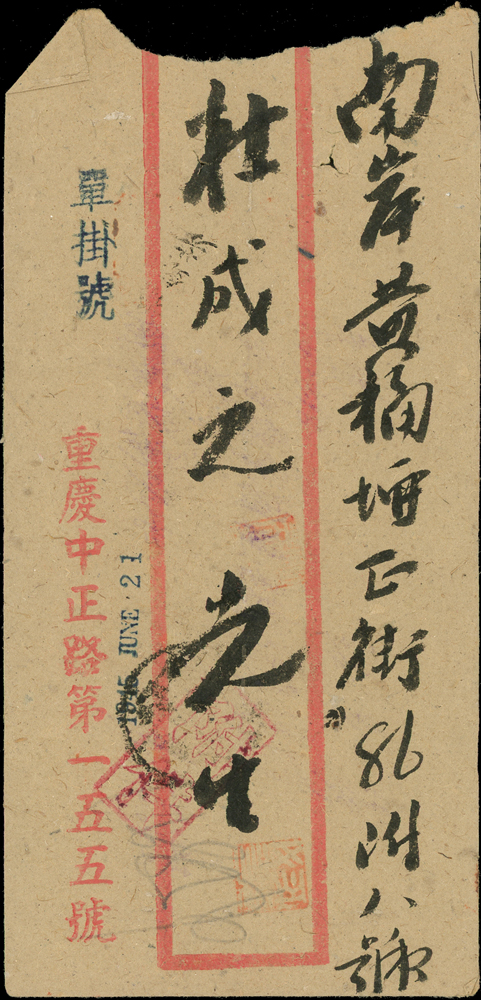 南岸黄桷埡正街86附八號
杜成之先生
單掛號
1945 JUNE 21
重慶中正路第一五五號